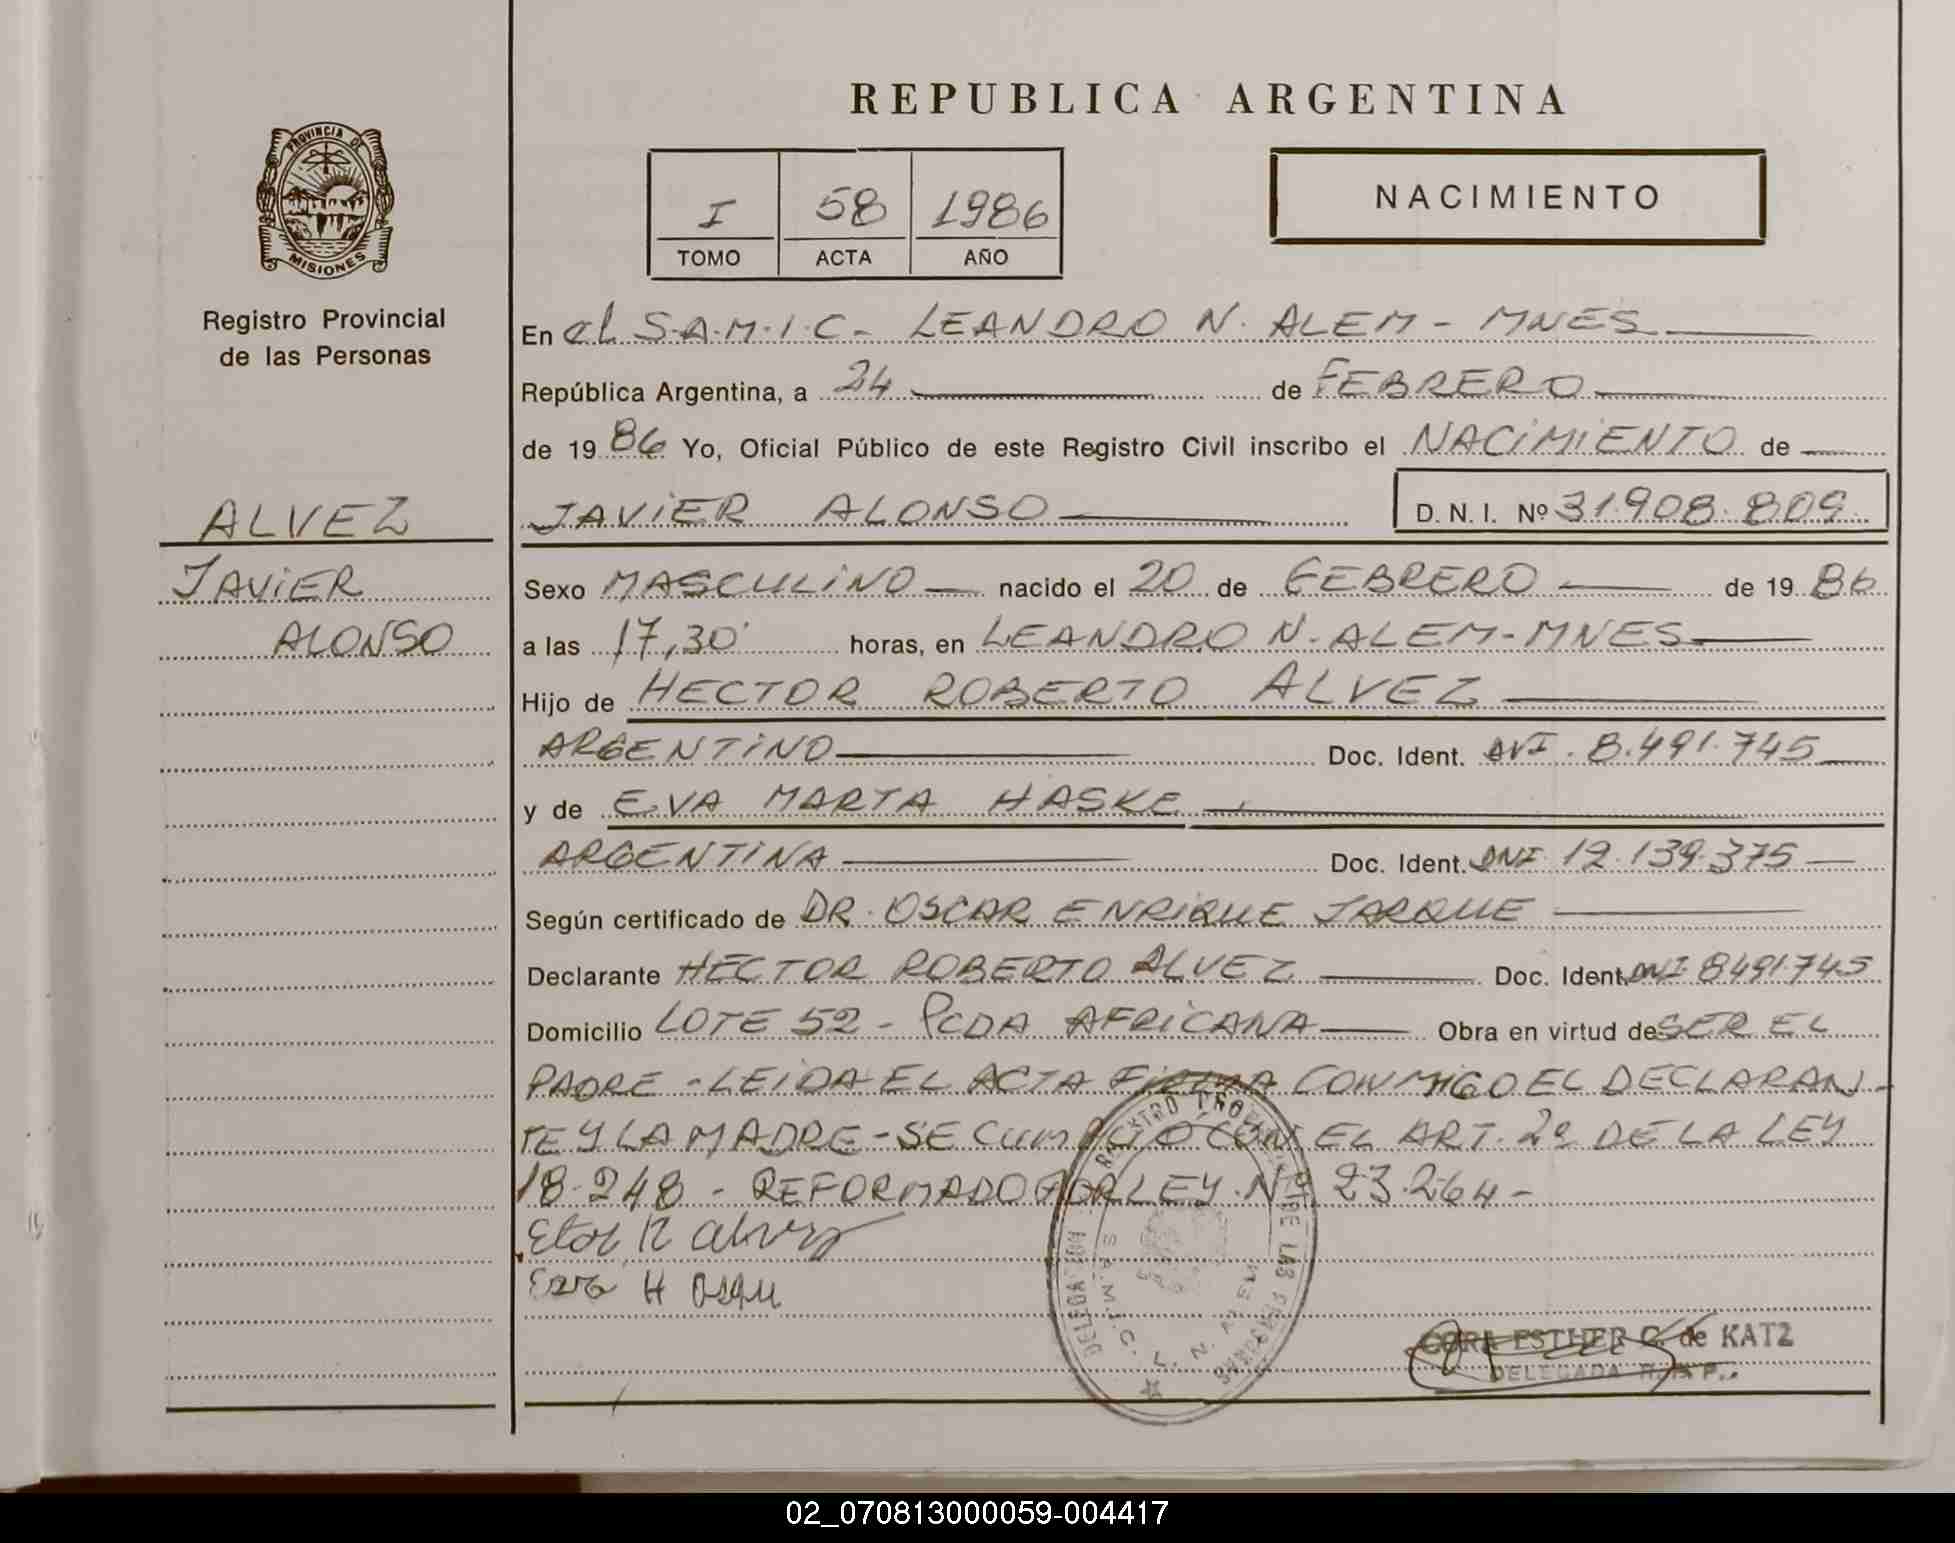 REPUBLICA ARGENTINA
PROVINCIA DE
MISIONES
Registro Provincial
de las Personas
I 58 1986
TOMO ACTA AÑO
NACIMIENTO
En el S.A.M.I.C - LEANDRO N. ALEM - MNES
República Argentina, a 24 de FEBRERO
de 1986 Yo, Oficial Público de este Registro Civil inscribo el NACIMIENTO de
ALVEZ
JAVIER ALONSO D. N. I. Nº 31.908.809
JAVIER
ALONSO
Sexo MASCULINO nacido el 20 de FEBRERO de 1986
a las 17,30 horas, en LEANDRO N. ALEM - MNES
Hijo de HECTOR ROBERTO ALVEZ
ARGENTINO Doc. Ident. DNI. 8.491.745
y de EVA MARTA HASKE
ARGENTINA Doc. Ident. DNI 12.139.375
Según certificado de DR. OSCAR ENRIQUE JARQUE
Declarante HECTOR ROBERTO ALVEZ Doc. Ident. DNI 8491.745
Domicilio LOTE 52 - PCDA AFRICANA Obra en virtud de SER EL
PADRE - LEIDA EL ACTA FIRMA CONMIGO EL DECLARAN-
TE Y LA MADRE - SE CUMPLIÓ CON EL ART. 2º DE LA LEY
18.248 - REFORMADO POR LEY Nº 23.264 -
REGISTRO PROVINCIAL DE LAS PERSONAS
DELEGACION
S.A.M.I.C. L. N. ALEM
CORA ESTHER C. de KATZ
DELEGADA R. P. P.
02_070813000059-004417